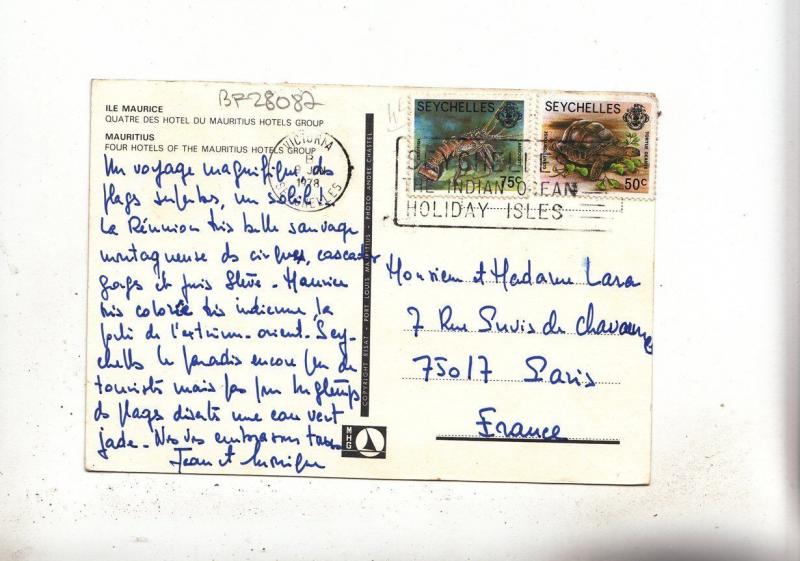 BF28087
ILE MAURICE
QUATRE DES HOTEL DU MAURITIUS HOTELS GROUP
MAURITIUS
FOUR HOTELS OF THE MAURITIUS HOTELS GROUP
VICTORIA
B
1978
SEYCHELLES
SEYCHELLES
75c
SEYCHELLES
50c
SEYCHELLES
THE INDIAN OCEAN
HOLIDAY ISLES
Un voyage magnifique des
plages superbes, un soleil !
La Réunion très belle sauvage
montagneuse des cirques, cascades
gorges et puis Grève - Maurice
très colorée très indienne, la
porte de l'extrême-orient. Sey-
chelles le paradis encore peu de
touristes mais pas pour longtemps
des plages désertes une eau vert
jade. Nous vous embrassons tous
Jean et Monique
COPYRIGHT RISAT - PORT LOUIS MAURITIUS - PHOTO ANDRE CHASTEL
MHG
Monsieur et Madame Lara
7 Rue Puvis de Chavannes
75017 Paris
France